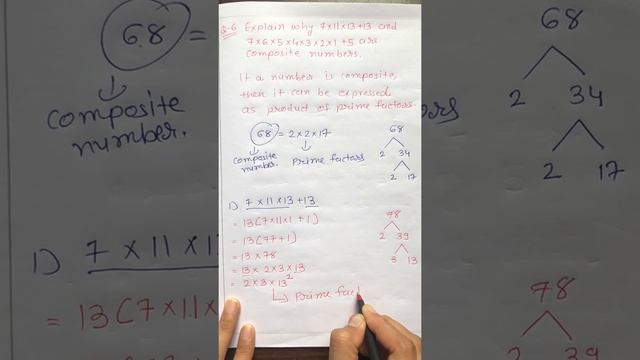 Q-6 Explain why 7×11×13+13 and
7×6×5×4×3×2×1+5 are
composite numbers.
If a number is composite,
then it can be expressed
as product of prime factors.
68 = 2×2×17
composite number.
Prime factors
68
2 34
2 17
1) 7 × 11 × 13 + 13
= 13(7×11×1 + 1)
= 13(77+1)
= 13 × 78
= 13 × 2×3×13
= 2×3×13²
Prime fac
78
2 39
3 13
68 =
composite
number.
1) 7 × 11 × 1
= 13(7×11×
68
2 34
2 17
ors
78
2 39